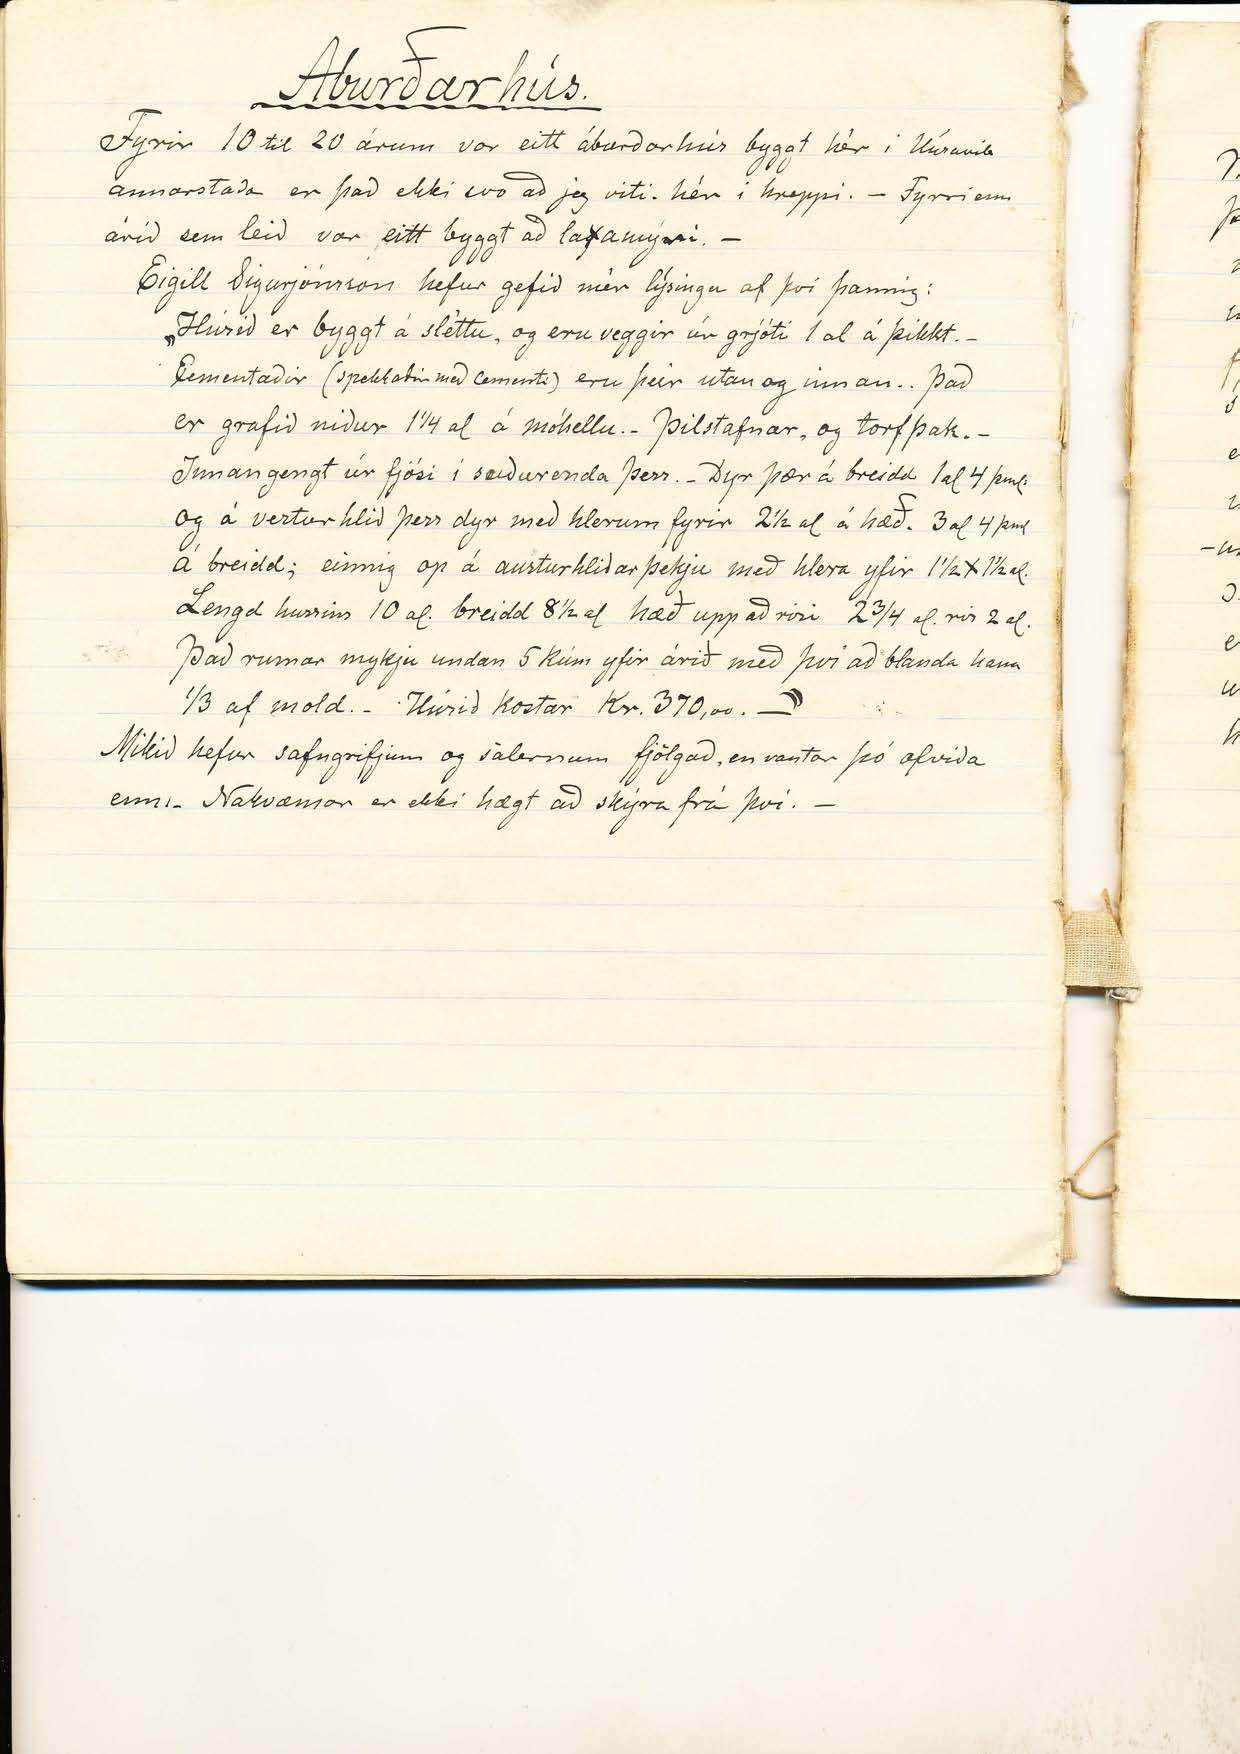 Áburðarhús.
Fyrir 10 til 20 árum var eitt áburðarhús byggt hér í Húsavík
annarstaða er það ekki svo að jeg viti. hér í hreppi. - Fyrri enn
árið sem leið var eitt byggt að laxamýri. -
Eigill Sigurjónsson hefur gefið mér lýsingu af því þannig:
„Húsið er byggt á sléttu, og eru veggir úr grjóti 1 al á þikkt. -
Cementaðir (spekkaðir með cementi) eru þeir utan og innan.. Það
er grafið niður 1 1/4 al á móhellu. - Þilstafnar, og torfþak. -
Innangengt úr fjósi í suðurenda þess. - Dyr þær á breidd 1 al 4 þml:
og á vesturhlið þess dyr með hlerum fyrir 2 1/2 al á hæð. 3 al 4 þml
á breidd; einnig op á austurhliðarþekju með hlera yfir 1 1/2 x 1 1/2 al.
Lengd hussins 10 al. breidd 8 1/2 al hæð upp að risi 2 3/4 al. ris 2 al.
Það rumar mykju undan 5 kúm yfir árið með því að blanda hana
1/3 af mold. - Húsið kostar Kr. 370,00. —"
Mikið hefur safngrifjum og salernum fjölgað, en vantar þó afvíða
enn. - Nakvæmar er ekki hægt að skýra frá því. -